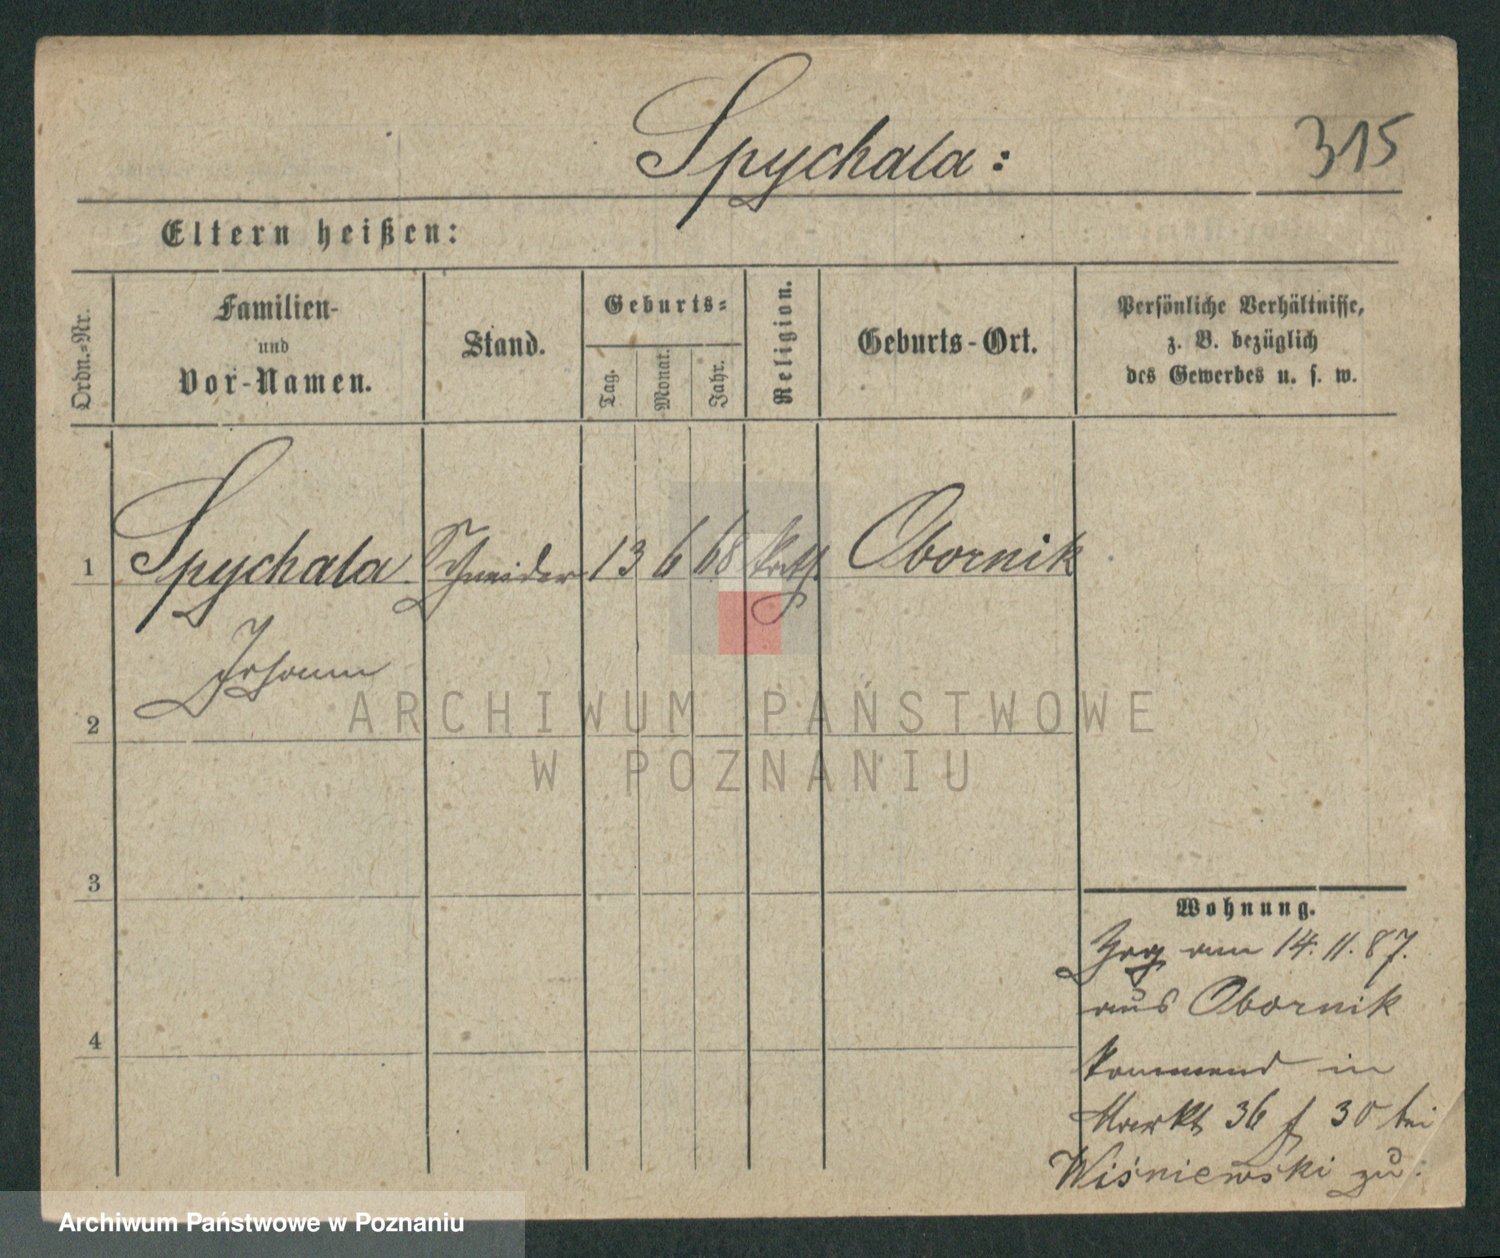 Spychala:
315
Eltern heißen:
Ordn.-Nr.
Familien-
und
Vor-Namen.
Stand.
Geburts-
Tag.
Monat.
Jahr.
Religion.
Geburts-Ort.
Persönliche Verhältnisse,
z. B. bezüglich
des Gewerbes u. s. w.
1
Spychala
Schneider
13
6
68
kath
Obornik
Johann
2
3
4
Wohnung.
am 14. 11. 87.
aus Obornik
kommend in
Markt 36 30 bei
Wiśniewski zu.
ARCHIWUM PAŃSTWOWE
W POZNANIU
Archiwum Państwowe w Poznaniu